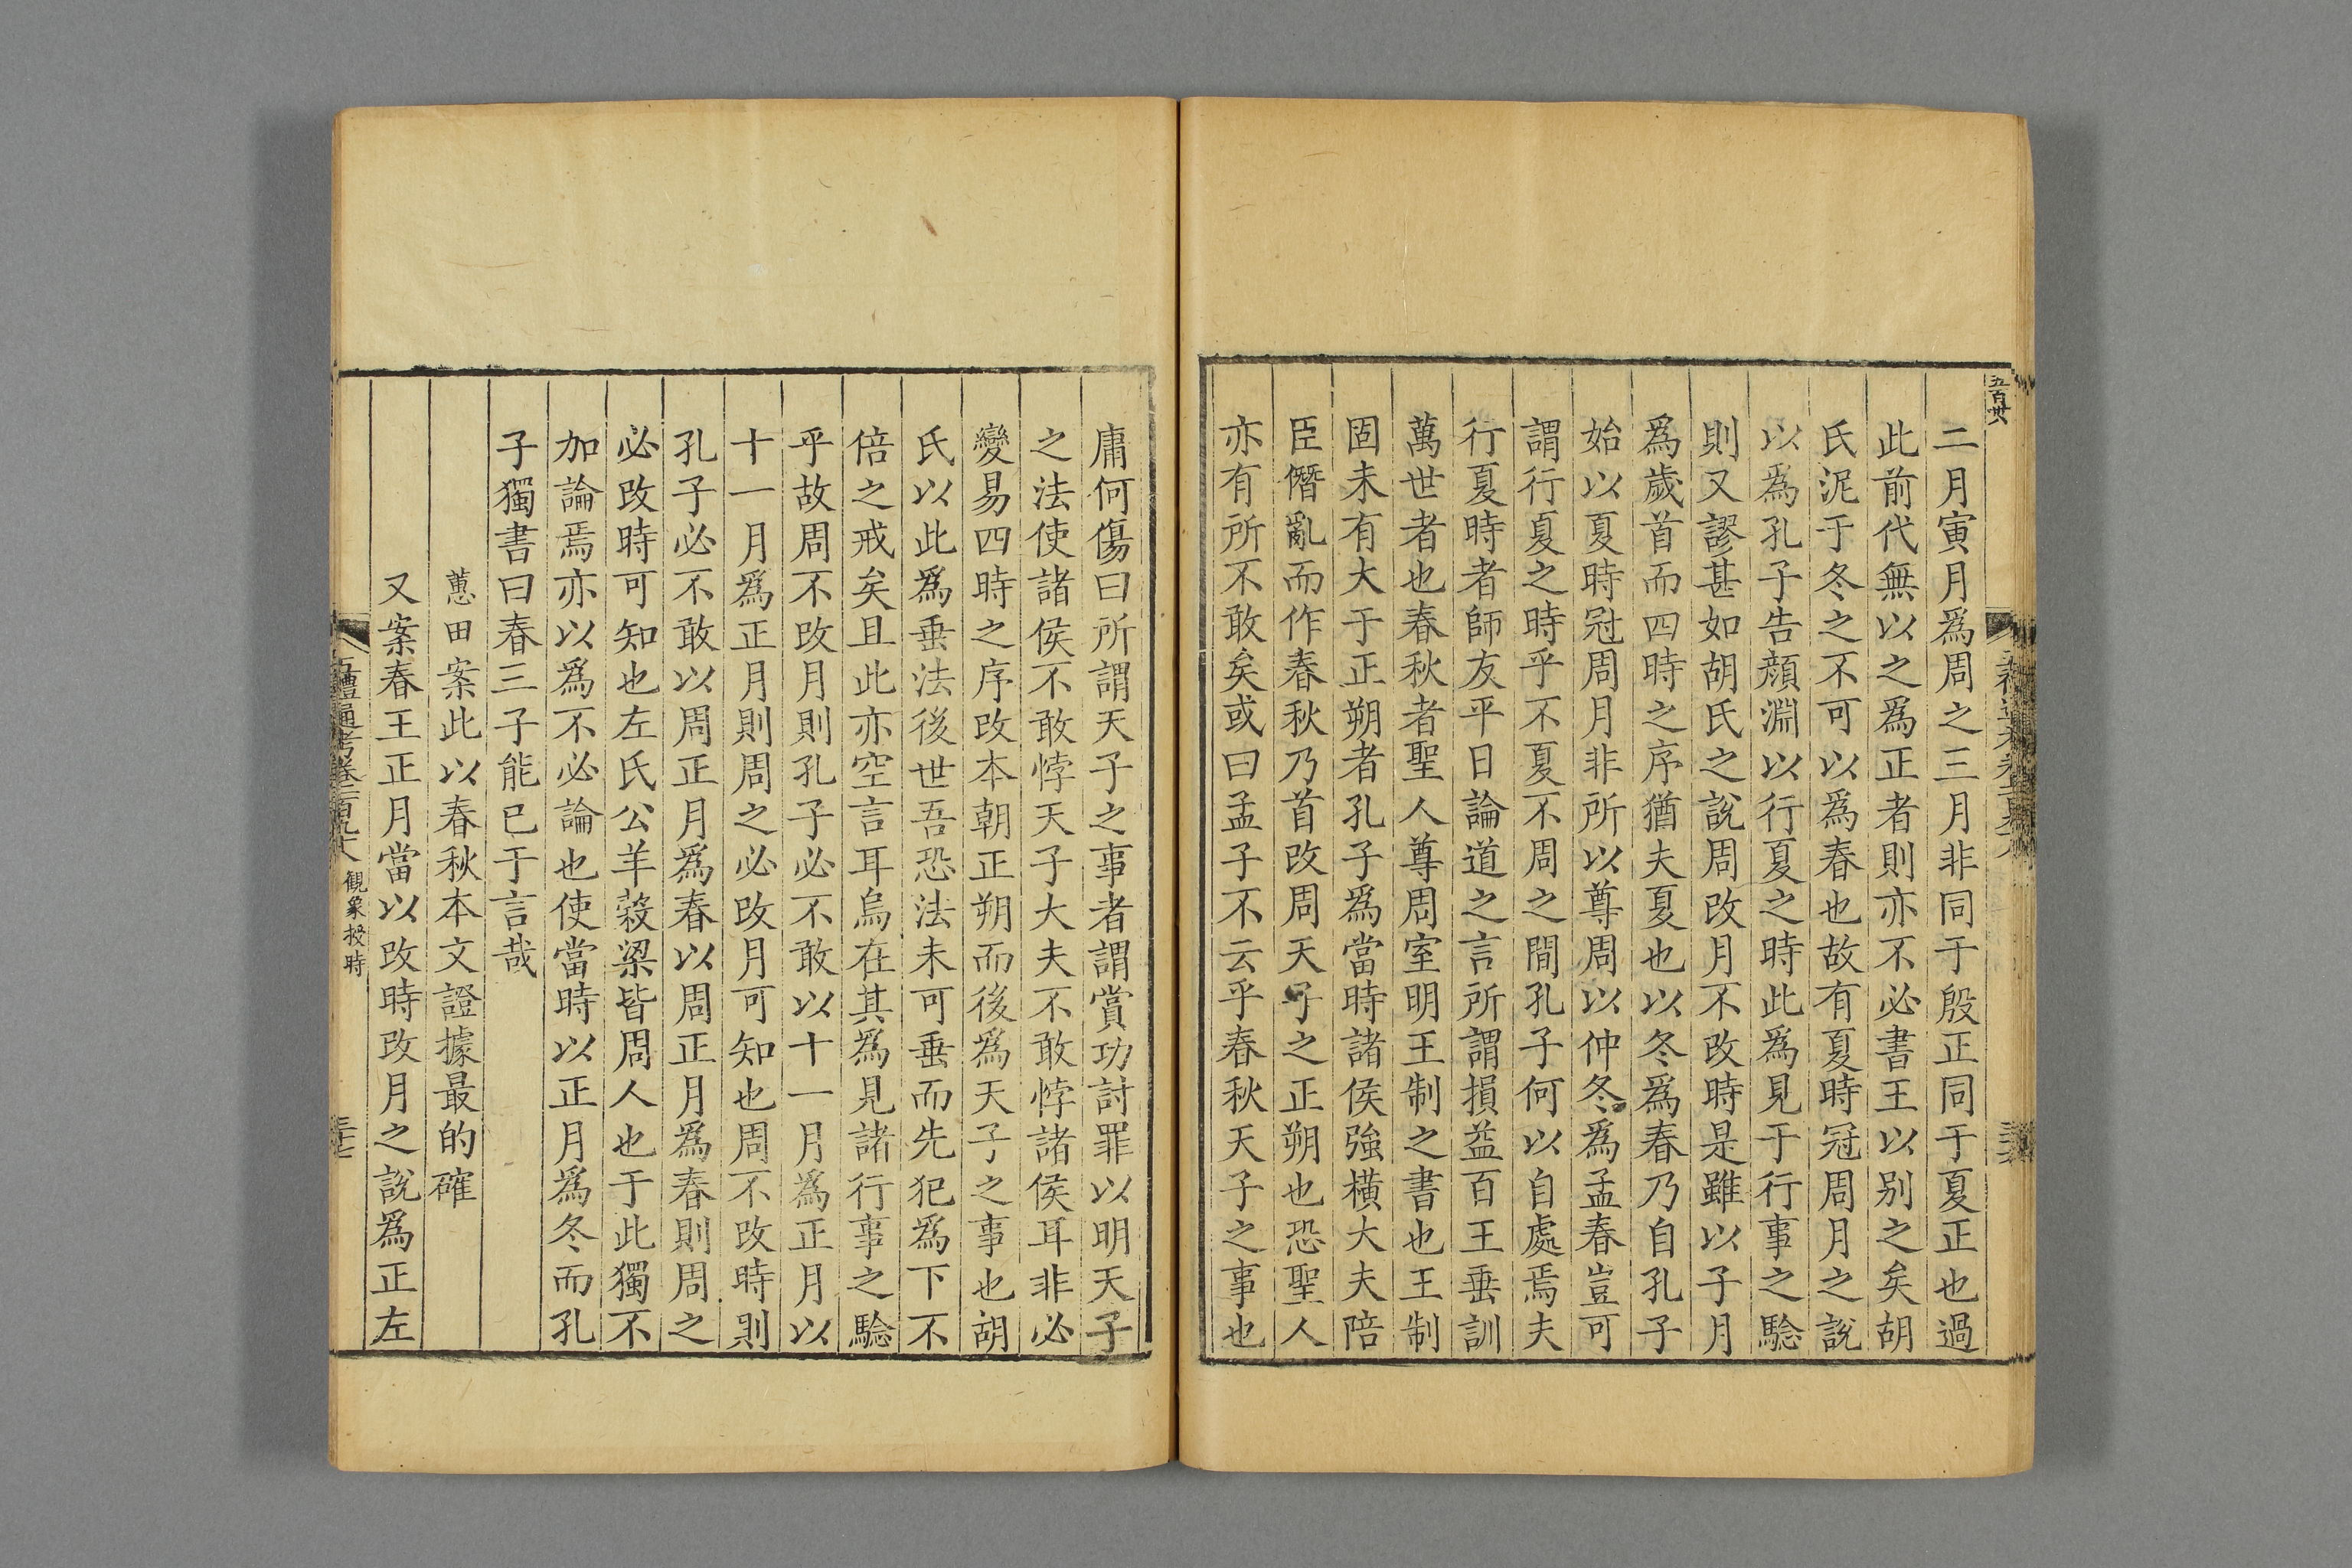 五百卅六
二月寅月爲周之三月非同于殷正同于夏正也過
此前代無以之爲正者則亦不必書王以別之矣胡
氏泥于冬之不可以爲春也故有夏時冠周月之說
以爲孔子告顏淵以行夏之時此爲見于行事之驗
則又謬甚如胡氏之說周改月不改時是雖以子月
爲歲首而四時之序猶夫夏也以冬爲春乃自孔子
始以夏時冠周月非所以尊周以仲冬爲孟春豈可
謂行夏之時乎不夏不周之間孔子何以自處焉夫
行夏時者師友平日論道之言所謂損益百王垂訓
萬世者也春秋者聖人尊周室明王制之書也王制
固未有大于正朔者孔子爲當時諸侯強橫大夫陪
臣僭亂而作春秋乃首改周天子之正朔也恐聖人
亦有所不敢矣或曰孟子不云乎春秋天子之事也
庸何傷曰所謂天子之事者謂賞功討罪以明天子
之法使諸侯不敢悖天子大夫不敢悖諸侯耳非必
變易四時之序改本朝正朔而後爲天子之事也胡
氏以此爲垂法後世吾恐法未可垂而先犯爲下不
倍之戒矣且此亦空言耳烏在其爲見諸行事之驗
乎故周不改月則孔子必不敢以十一月爲正月以
十一月爲正月則周之必改月可知也周不改時則
孔子必不敢以周正月爲春以周正月爲春則周之
必改時可知也左氏公羊穀梁皆周人也于此獨不
加論焉亦以爲不必論也使當時以正月爲冬而孔
子獨書曰春三子能已于言哉
蕙田案此以春秋本文證據最的確
又案春王正月當以改時改月之說爲正左
五禮通考卷二百九十八 觀象授時
三十七